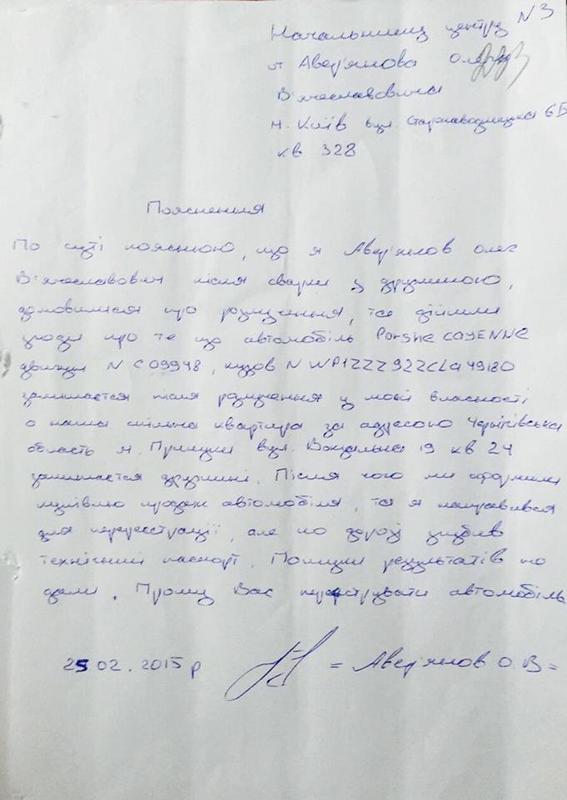 Начальнику центру N3
от Авер'янова Олега
В'ячеславовича
м. Київ вул. Старнаводницька 6Б
кв 328
Пояснення
По суті пояснюю, що я Авер'янов Олег
В'ячеславович після сварки з дружиною,
домовилися про розлучення, та дійшли
угоди про те що автомобіль Porshe CAYENNE
двигун N C09948, кузов N WP1ZZZ92ZCLA49180
залишається після розлучення у моїй власності
а наша спільна квартира за адресою Чернігівська
область м. Прилуки вул. Вокзальна 19 кв 24
залишається дружині. Після чого ми оформили
купівлю продаж автомобіля, та я направився
для перереєстрації, але по дорозі згубив
технічний паспорт. Пошуки результатів не
дали. Прошу Вас автомобіль
25.02.2015 р = Авер'янов О.В =